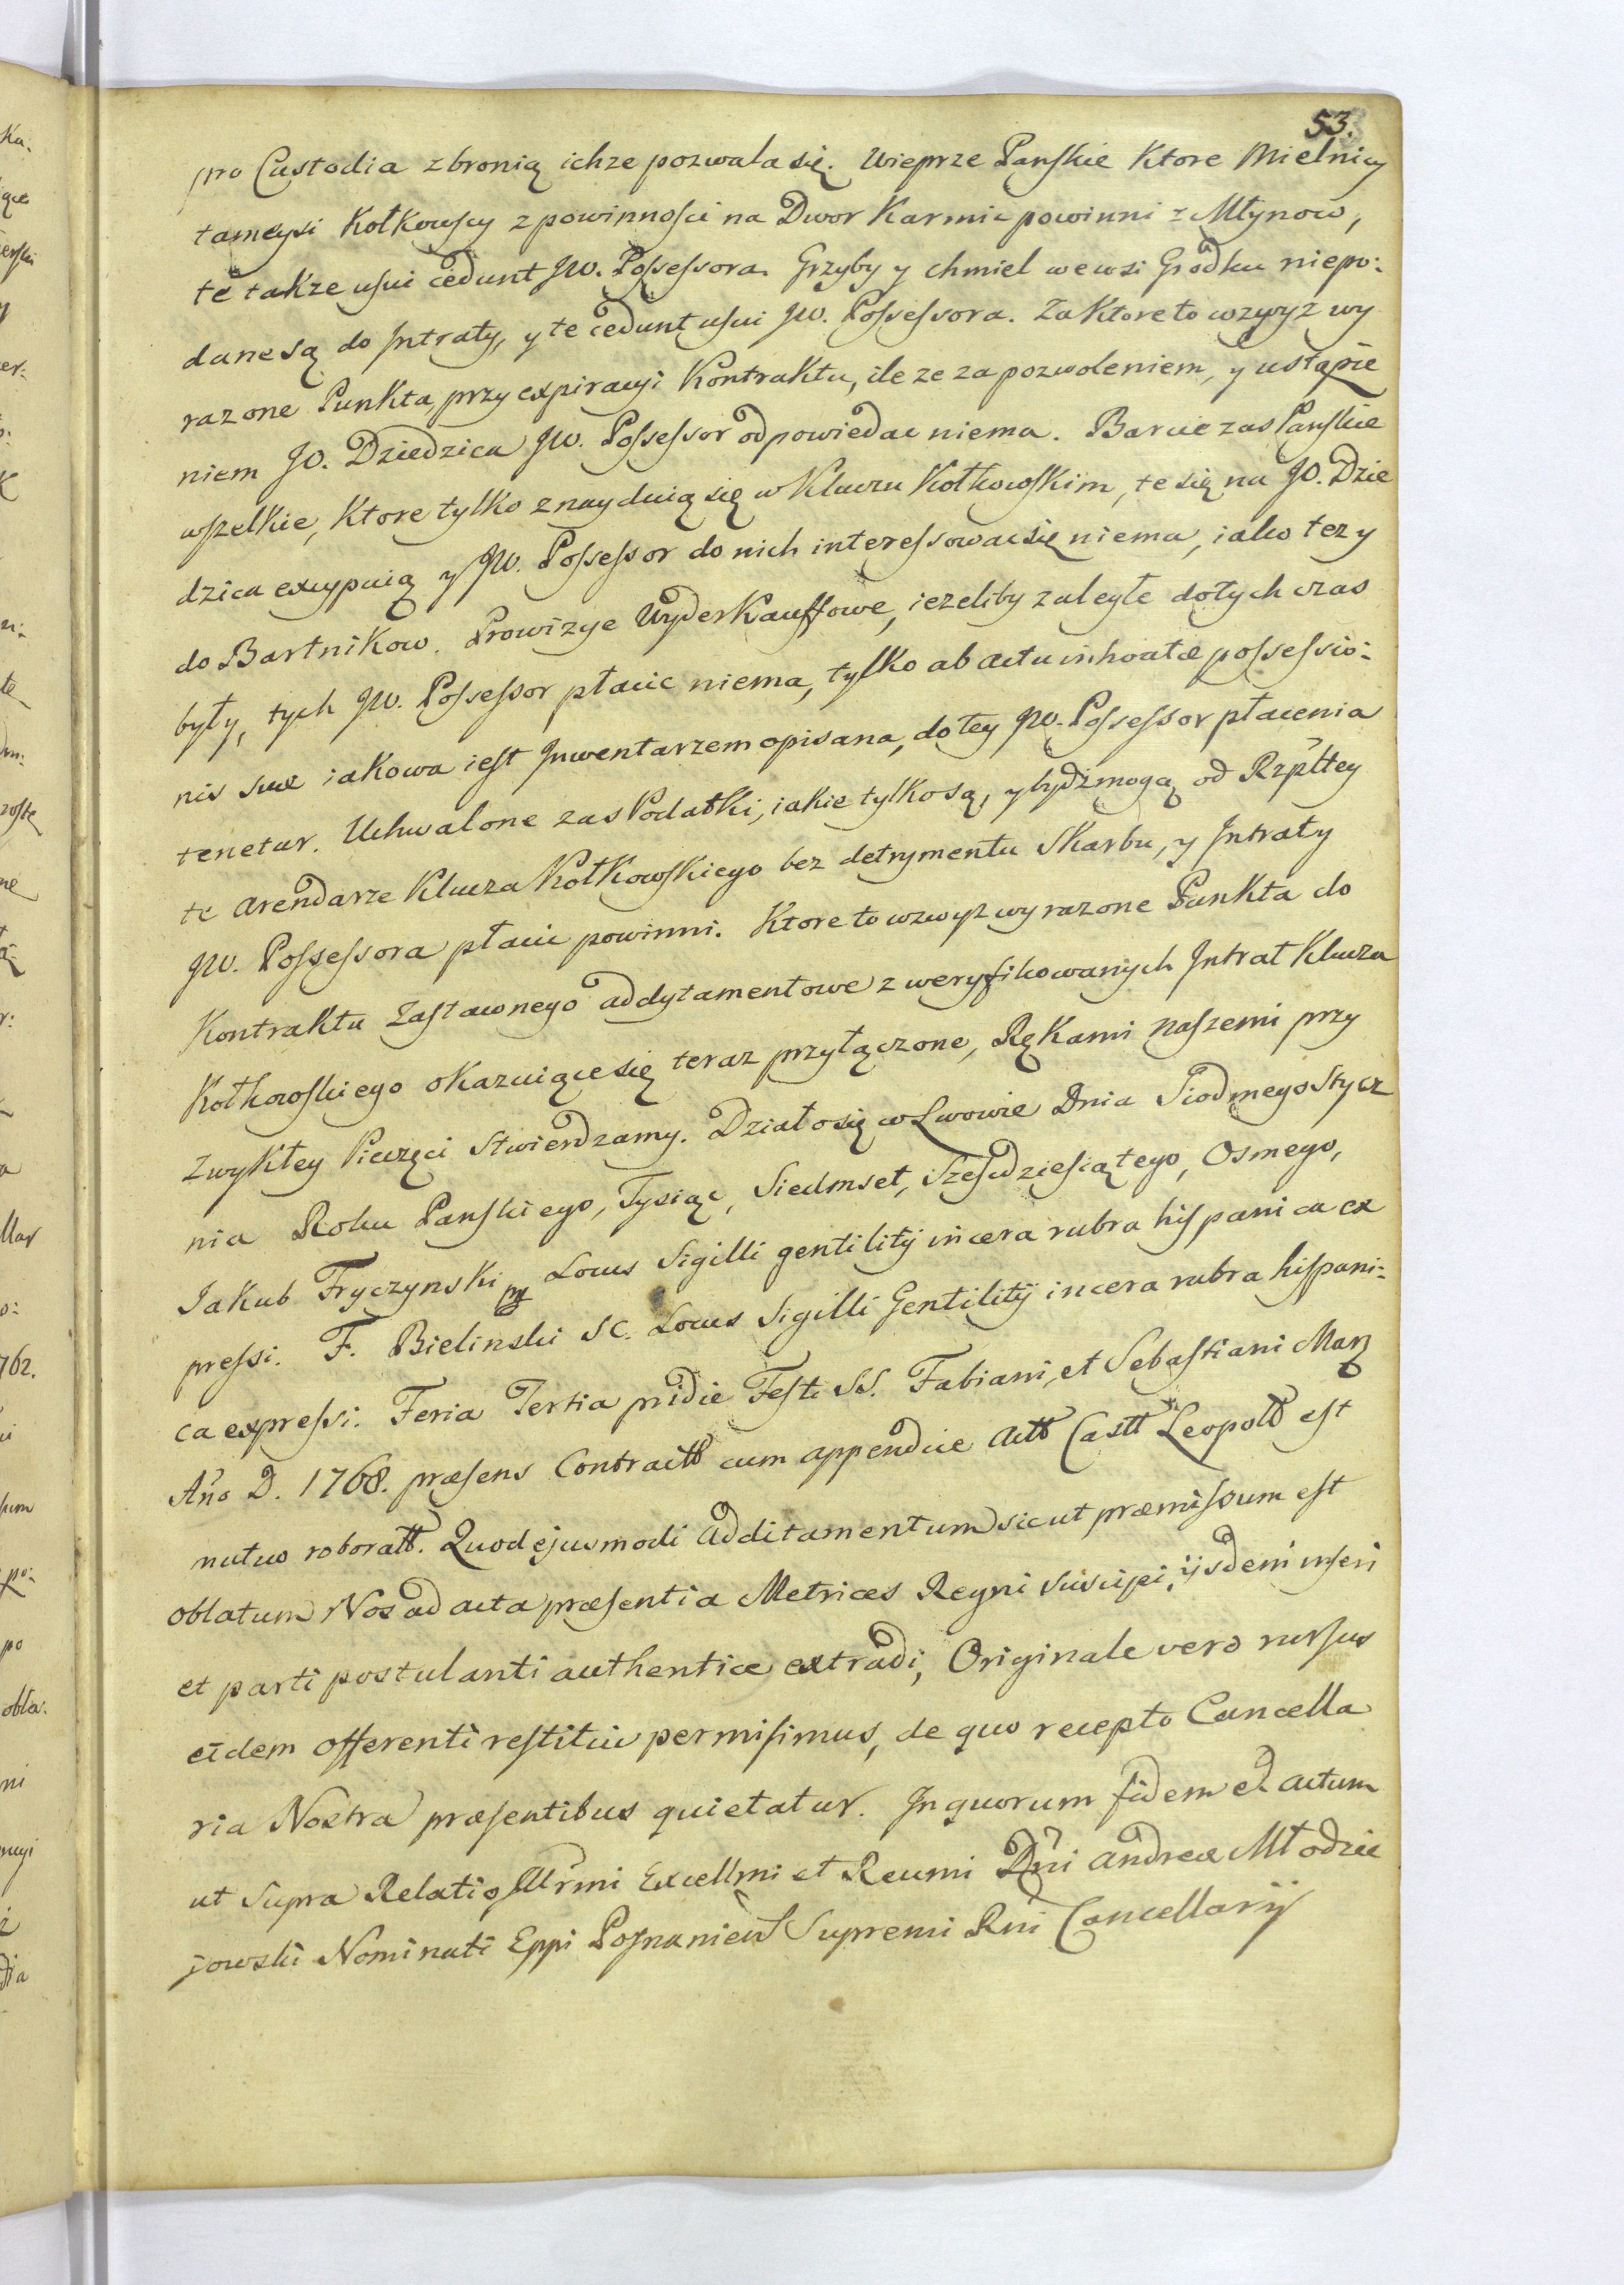 53.
pro Custodia z bronią ichze pozwala się. Wieprze Pańskie Ktore Mielnicy
tameysi Kołkowscy z powinnosci na Dwor Karmic powinni z Młynow,
te takze usui cedunt JW. Possessora. Grzyby y chmiel we wsi Grodku niepo:
dane są do Jntraty, y te cedunt usui JW. Possessora. Za Ktore to wzwyż wy
razone Punkta, przy expiracyi Kontraktu, ile ze za pozwoleniem, y ustąpie
niem JO. Dziedzica JW. Possessor odpowiedac niema. Barcie zas Pańskie
wszelkie, Ktore tylko znayduią się w Kluczu Kołkowskim, te się na JO. Dzie
dzica excypuią y JW. Possessor do nich interessowac się niema, iako tez y
do Bartnikow. Prowizye Wyderkauffowe, iezeliby zaległe dotych czas
były, tych JW. Possessor płacic niema, tylko ab actu inhoatæ possessio:
nis suæ iakowa iest Jnwentarzem opisana, do tey JW. Possessor płacenia
tenetur. Uchwalone zas Podatki, iakie tylko są, y bydź mogą od Rzpltey
te Arendarze Klucza Kołkowskiego bez detrymentu Skarbu, y Jntraty
JW. Possessora płacic powinni. Ktore to wzwyz wyrazone Punkta do
Kontraktu Zastawnego addytamentowe z weryfikowanych Jntrat Klucza
Kołkowskiego okazuiące się teraz przyłączone, Rękami naszemi przy
Zwykłey Pieczęci Stwierdzamy. Działo się w Lwowie Dnia Siodmego Stycz
nia Roku Pańskiego, Tysiąc, Siedmset, Szescdziesiątego, Osmego,
Jakub Fryczynski mp Locus Sigilli gentilitij in cera rubra hispanica ex
pressi. F. Bielinski SC. Locus Sigilli Gentilitij in cera rubra hispani:
ca expressi. Feria Tertia pridie Festi SS. Fabiani, et Sebastiani Marz
Año D. 1768. præsens Contractt cum appendice Actt Castt Leopoltt est
nutuo roboratt. Quod ejusmodi Additamentum sicut præmissum est
oblatum Nos ad acta præsentia Metrices Regni suscipi, ijsdem inseri
et parti postulanti authentice extradi, Originale vero rursus
eidem offerenti restitui permisimus, de quo recepto Cancella
ria Nostra præsentibus quietatur. In quorum fidem et Actum
ut Supra Relatio Illrmi Excellmi et Reumi Dñi Andreæ Młodzie
jowski Nominati Eppi Posnanien Supremi Rni Cancellarij